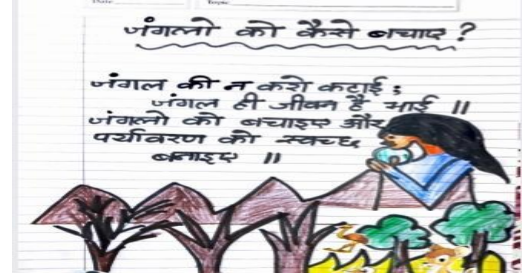 जंगलो को कैसे बचाए ?
जंगल की न करो कटाई ;
जंगल ही जीवन है भाई ॥
जंगलो को बचाइए और
पर्यावरण को स्वच्छ
बनाइए ॥